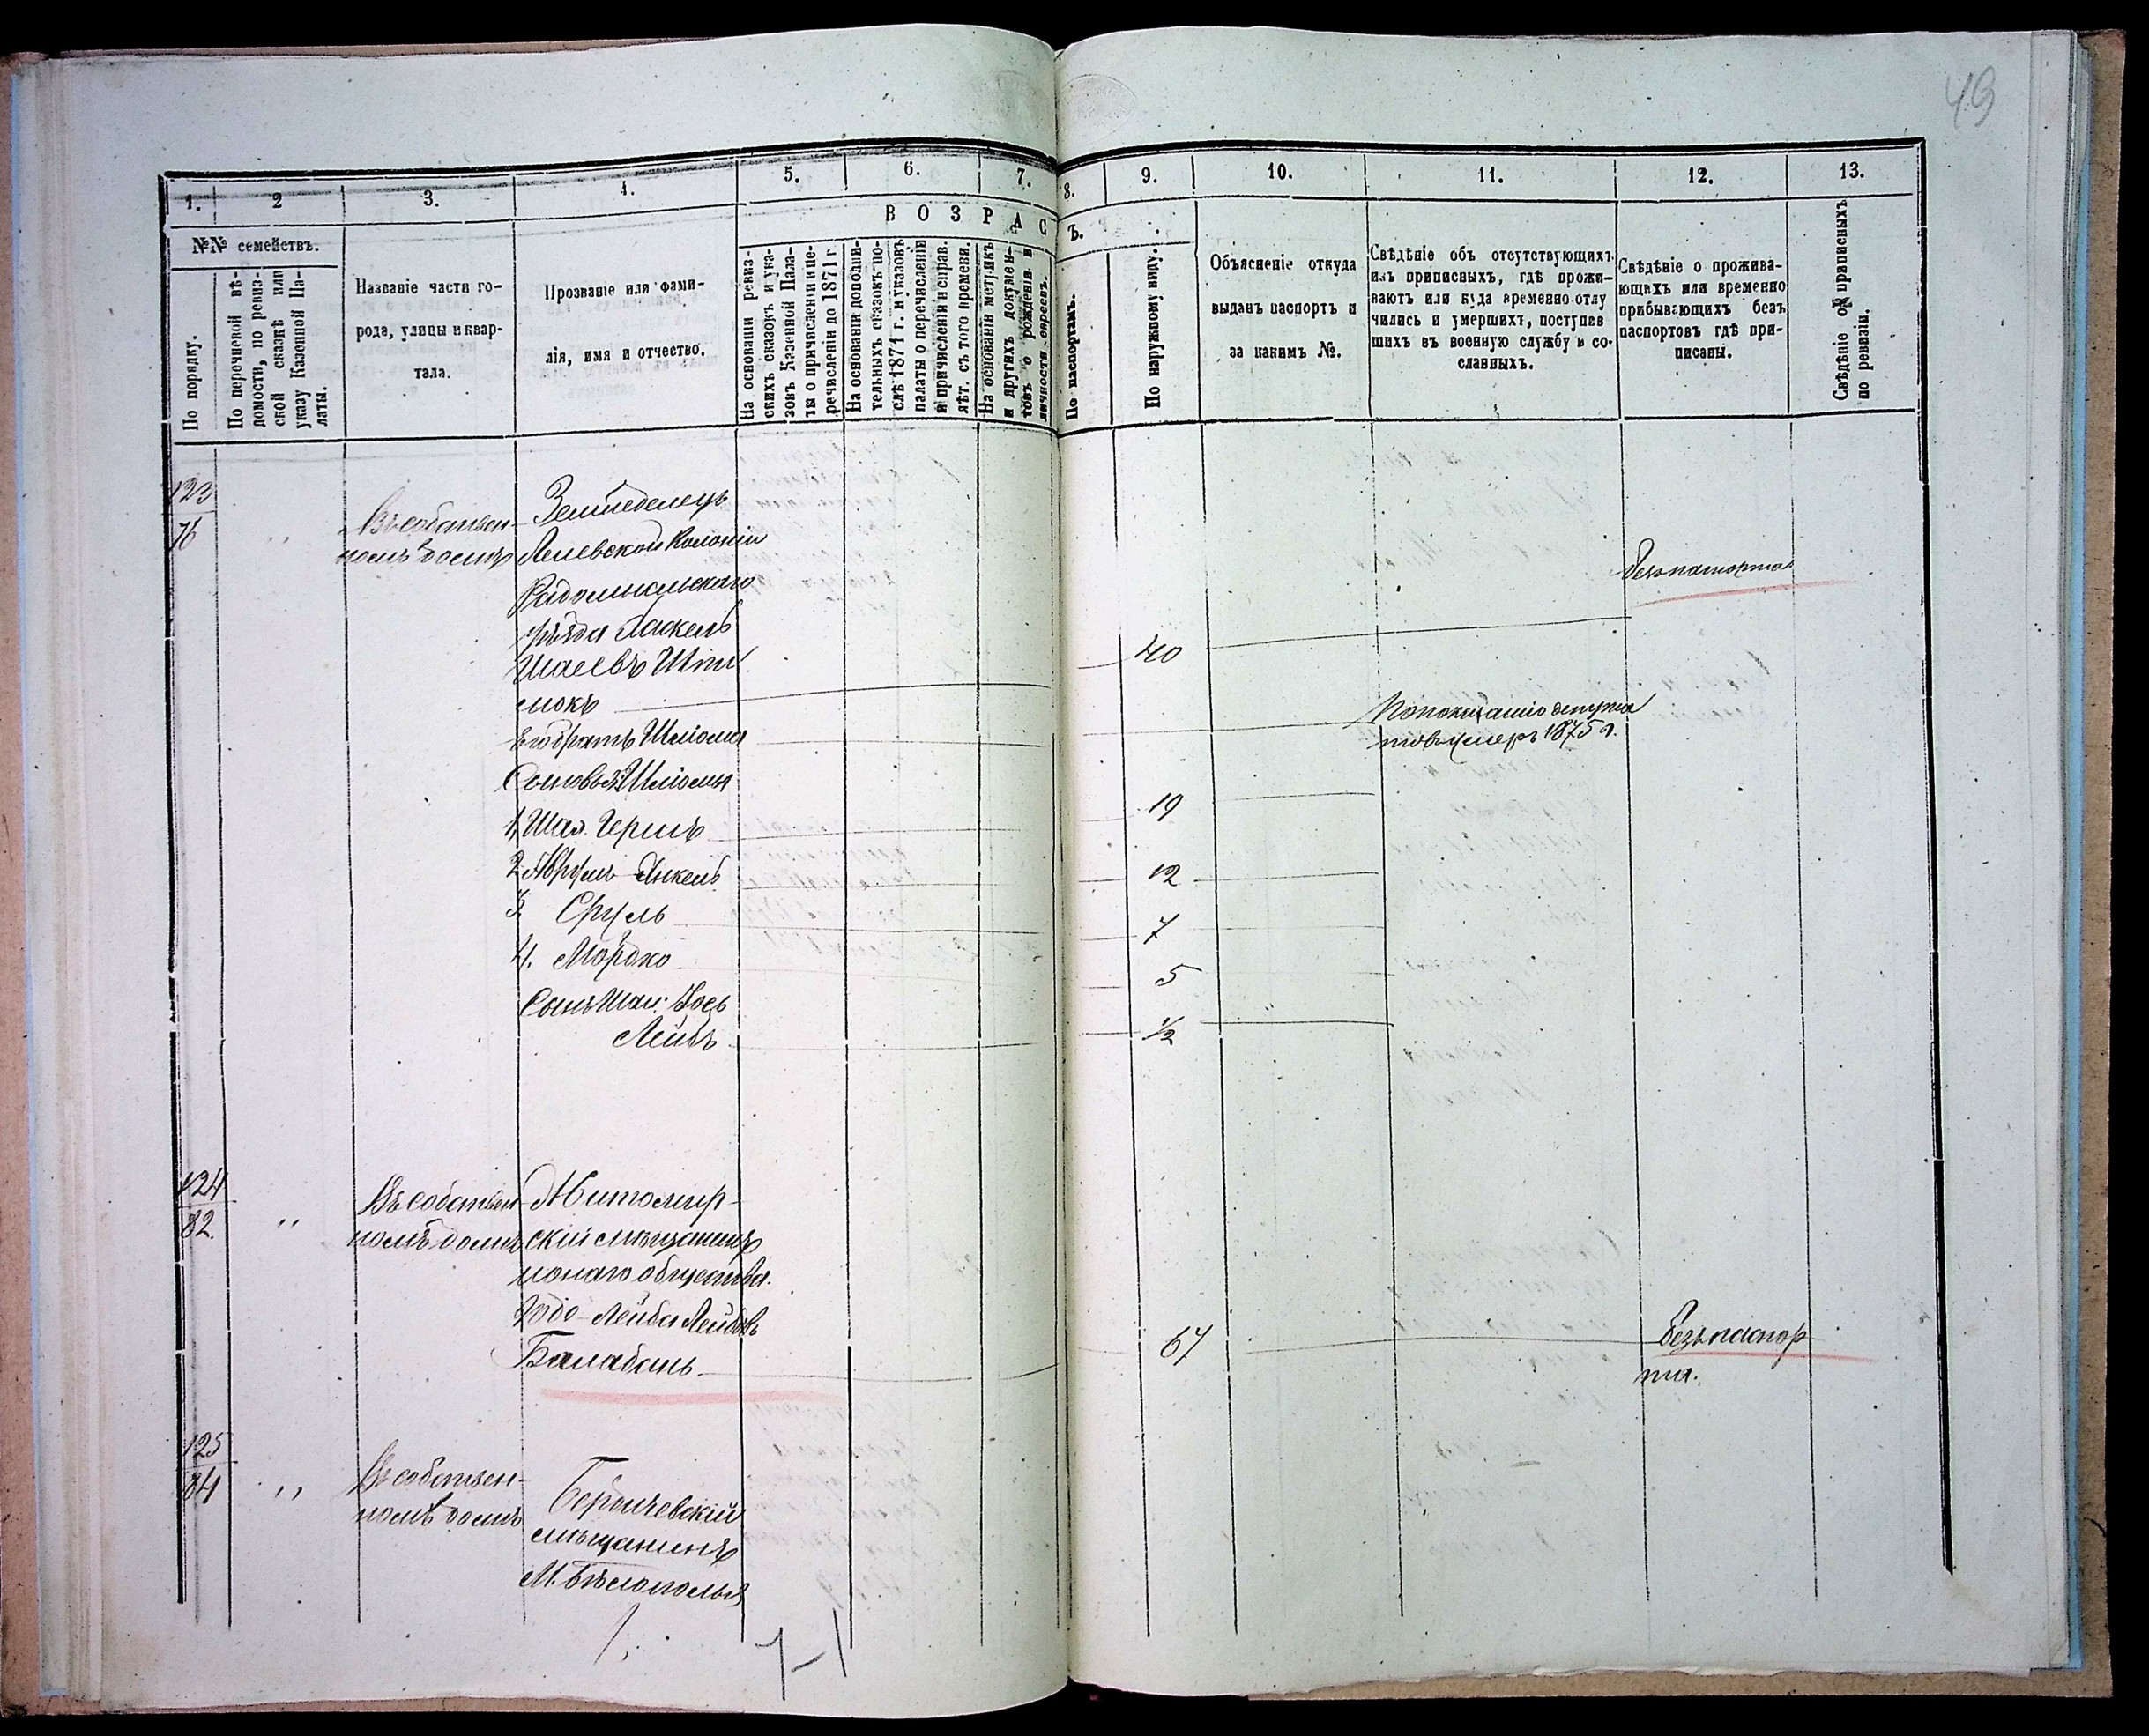 49
1. 2 3. 4. 5. 6. 7. 8. 9. 10. 11. 12. 13.
№№ семействъ.
По порядку.
По перечневой вѣ-
домости, по ревиз-
ской сказкѣ или
указу Казенной Па-
латы.
Названіе части го-
рода, улицы и квар-
тала.
Прозваніе или фами-
лія, имя и отчество.
ВОЗРАСТЪ.
На основаніи ревиз-
скихъ сказокъ и ука-
зовъ Казенной Пала-
ты о причисленіи и пе-
речисленіи до 1871 г.
На основаніи дополни-
тельныхъ сказокъ по-
слѣ 1871 г. и указовъ
палаты о перечисленіи
и причисленіи и справ.
лѣт. съ того времени.
На основаніи метрикъ
и другихъ докумен-
товъ о рожденіи и
личности евреевъ.
По паспортамъ.
По наружному виду.
Объясненіе откуда
выданъ паспортъ и
за какимъ №.
Свѣдѣніе объ отсутствующихъ
изъ приписныхъ, гдѣ прожи-
ваютъ или куда временно отлу
чились и умершихъ, поступив
шихъ въ военную службу и со-
сланныхъ.
Свѣдѣніе о прожива-
ющихъ или временно
прибывающихъ безъ
паспортовъ гдѣ при-
писаны.
Свѣдѣніе о приписныхъ
по ревизіи.
123
76 „ Въ собствен-
номъ домѣ
Земледелецъ
Колоніи
Радомысльскаго
уѣзда Хаскель
Шаевъ
мокъ 40
Безъ паспорта
Его братъ Шліома
По показанію депута
товъ умеръ 1875 г.
Сыновья Шліомы
1, Шая. Гершъ 19
2 Аврумъ-Янкель 12
3 Сруль 7
4. Мордко 5
Сынъ Шаи: Іось
Лейбъ 1/2
124
82. „ Въ собствен-
номъ домѣ
Житомир-
скій мѣщанинъ
общества.
Лейба Лейбовъ
Балабанъ 67
Безъ паспор
та.
125
84 „ Въ собствен-
номъ домѣ
Бердичевскій
мѣщанинъ
М. Бѣлополья